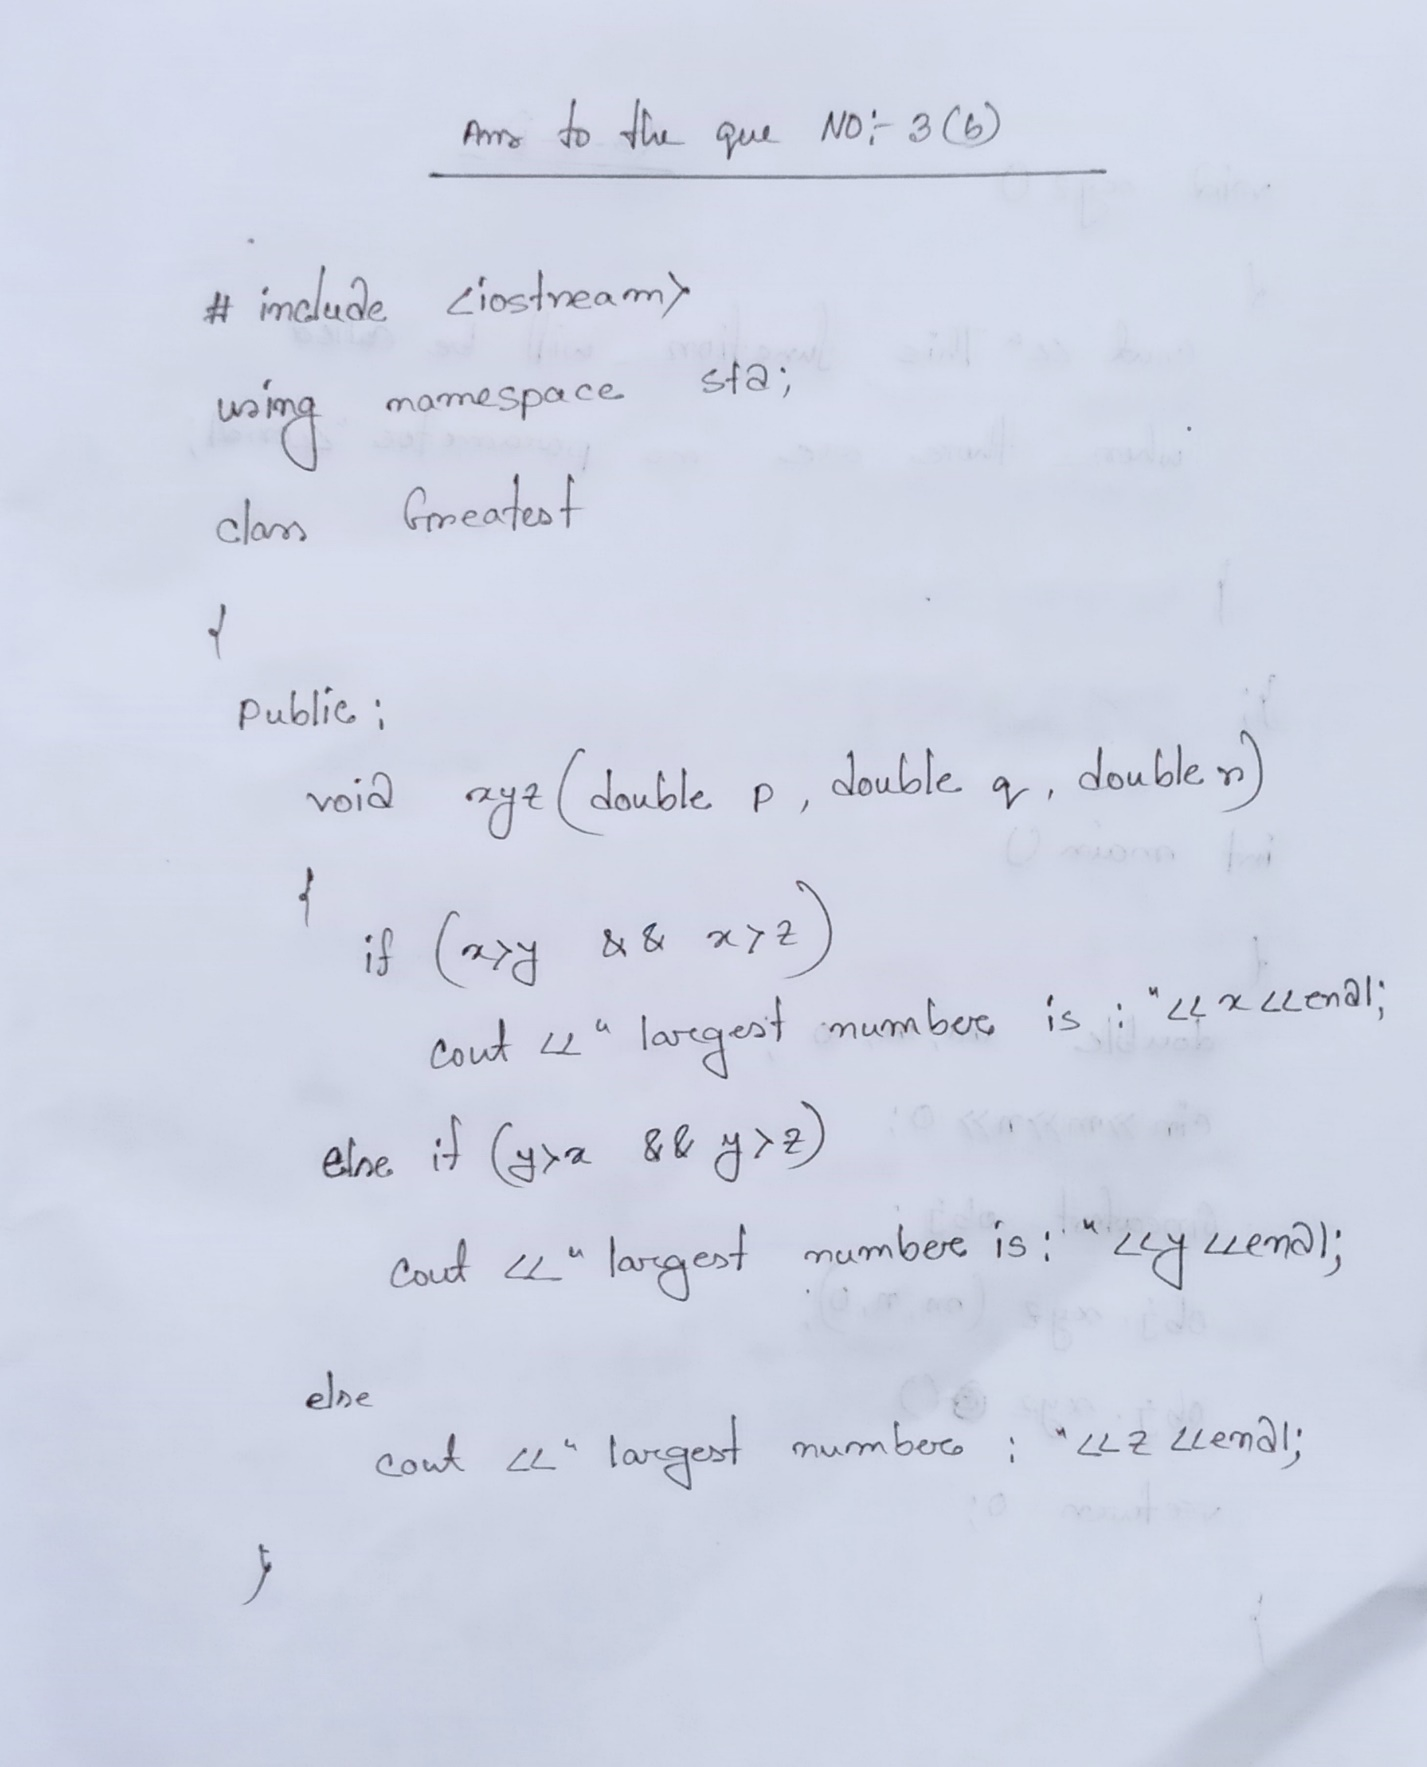 Ans to the que NO:- 3(b)
# include <iostream>
using namespace std;
class Greatest
{
public:
void xyz (double p, double q, double r)
{
if (x>y && x>z)
cout << "largest number is : "<< x <<endl;
else if (y>x && y>z)
cout << "largest number is: " <<y <<endl;
else
cout << "largest number : "<<z <<endl;
}